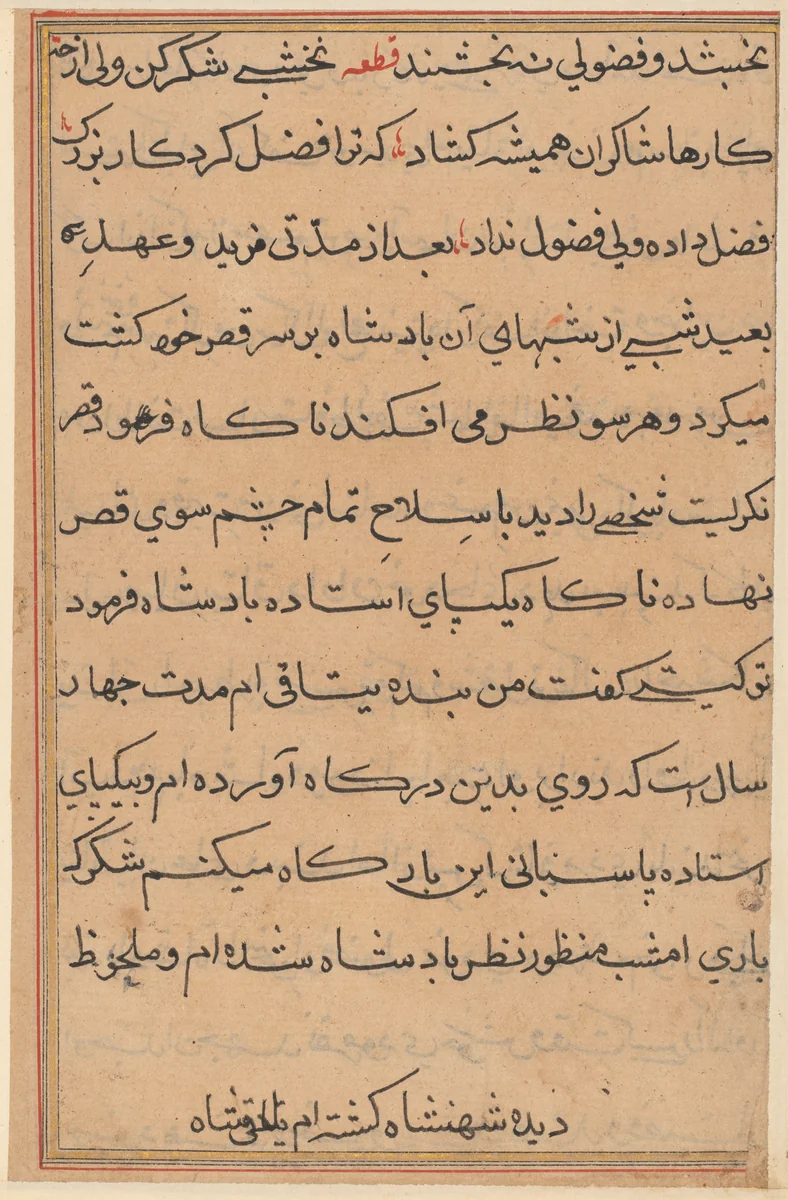 بخشد و فضولي نه بخشند قطعه نخشبے شکر کن ولی از حق
کارها شاکران همیشه کشاد که ترا فضل کرد کار بزرک
فضل داده ولي فضول نداد بعد از مدّتی مرید و عهدِ
بعید شبے از شبهاي آن بادشاه بر سر قصر خود کشت
میکرد و هر سو نظر می افکند ناکاه فرود قصر
نکریست شخصے را دید با سِلاحِ تمام چشم سوي قصر
نهاده ناکاه بیکپاي استاده بادشاه فرمود
تو کیستے کفت من بنده یتاقی ام مدت جهار
سال است که روي بدین درکاه آورده ام و بیکپاي
استاده پاسبانی این بارکاه میکنم شکر که
باري امشب منظور نظر بادشاه شده ام و ملحوظ
دیده شهنشاه کشته ام شاه